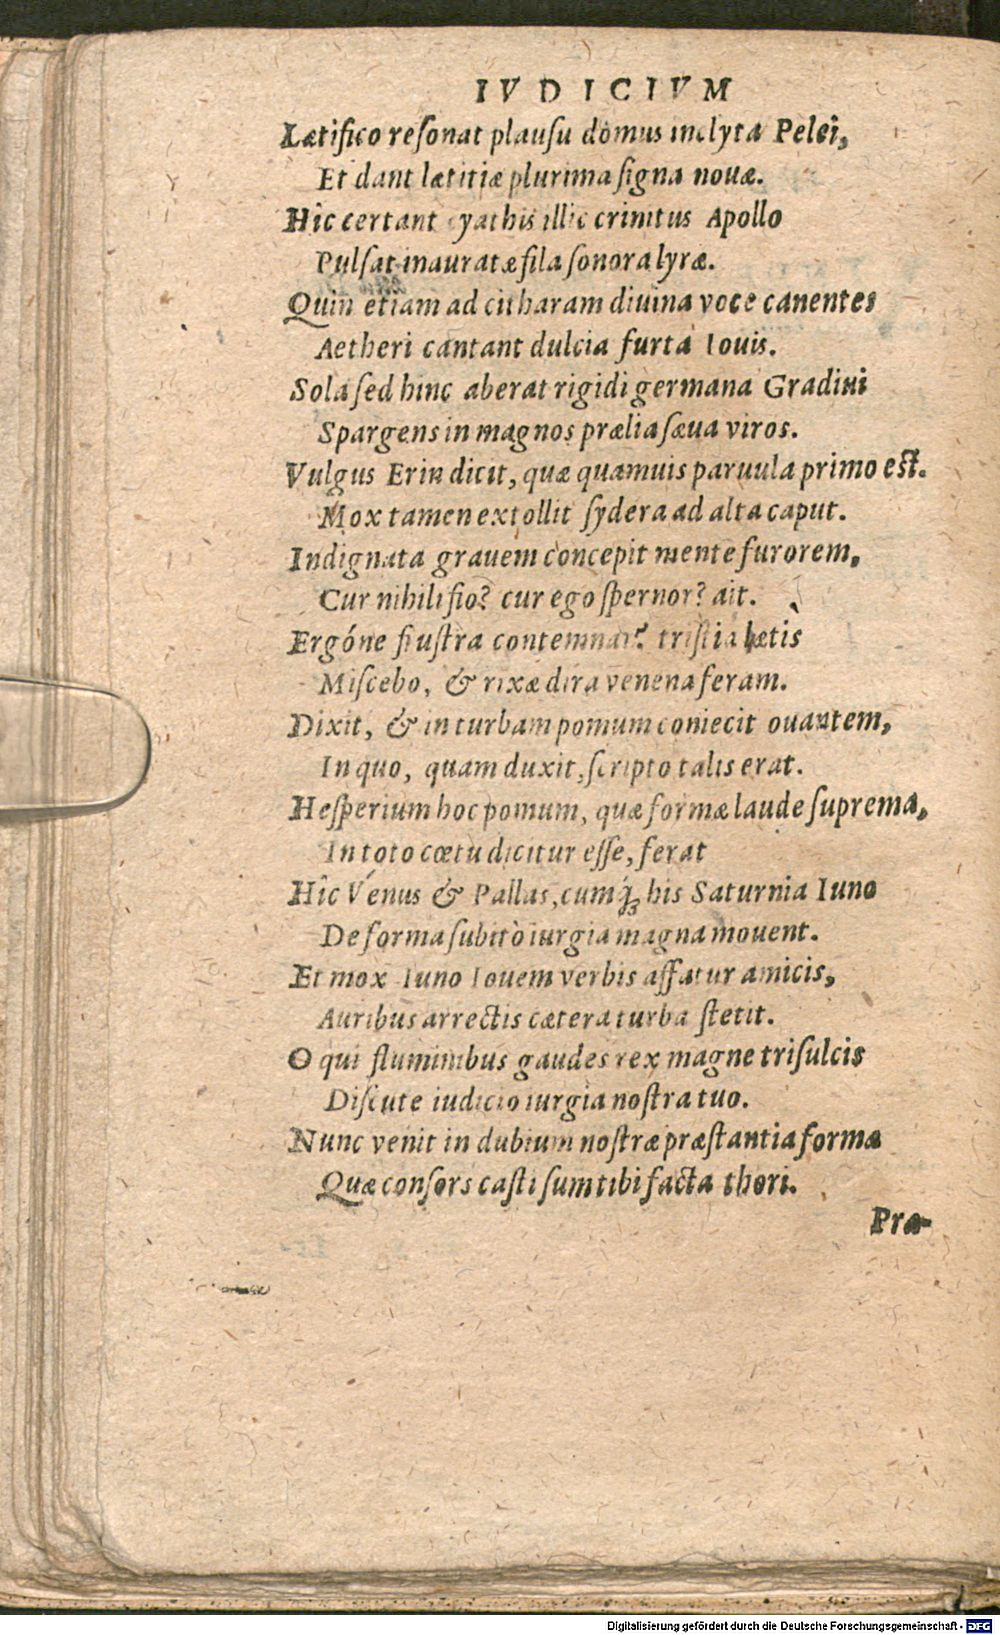 IVDICIVM
Lætifico reſonat plauſu domus inclyta Pelei,
Et dant lætitiæ plurima ſigna nouæ.
Hîc certant cyathis illic crinitus Apollo
Pulſat inauratæ fila ſonora lyræ.
Quin etiam ad citharam diuina voce canentes
Aetheri cantant dulcia furta Iouis.
Sola ſed hinc aberat rigidi germana Gradiui
Spargens in magnos prælia ſæua viros.
Vulgus Erin dicit, quæ quamuis paruula primo eſt.
Mox tamen extollit ſydera ad alta caput.
Indignata grauem concepit mente furorem,
Cur nihili fio? cur ego ſpernor? ait.
Ergóne fruſtra contemnar? triſtia lætis
Miſcebo, & rixæ dira venena feram.
Dixit, & in turbam pomum coniecit ouantem,
In quo, quam duxit, ſcriptio talis erat.
Heſperium hoc pomum, quæ formæ laude ſuprema,
In toto cœtu dicitur eſſe, ferat
Hîc Venus & Pallas, cumq́ꝫ his Saturnia Iuno
De forma ſubitò iurgia magna mouent.
Et mox Iuno Iouem verbis affatur amicis,
Auribus arrectis cætera turba ſtetit.
O qui fluminibus gaudes rex magne triſulcis
Diſcute iudicio iurgia noſtra tuo.
Nunc venit in dubium noſtræ præſtantia formæ
Quæ conſors caſti ſum tibi facta thori.
Præ-
Digitalisierung gefördert durch die Deutsche Forschungsgemeinschaft - DFG